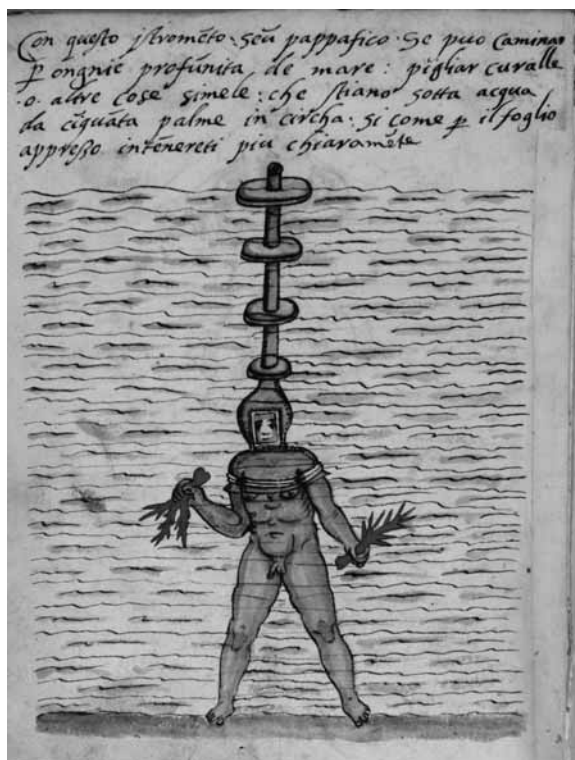 Con questo jstromẽto. seu pappafico. Se puo Caminar
p̱ ongnie profunita de mare: pigliar curalle
.o. altre cose simele: che stiano sotta acqua
da cĩquata palme in circha. Si come p̱ il foglio
appresso intenereti piu chiaramẽte